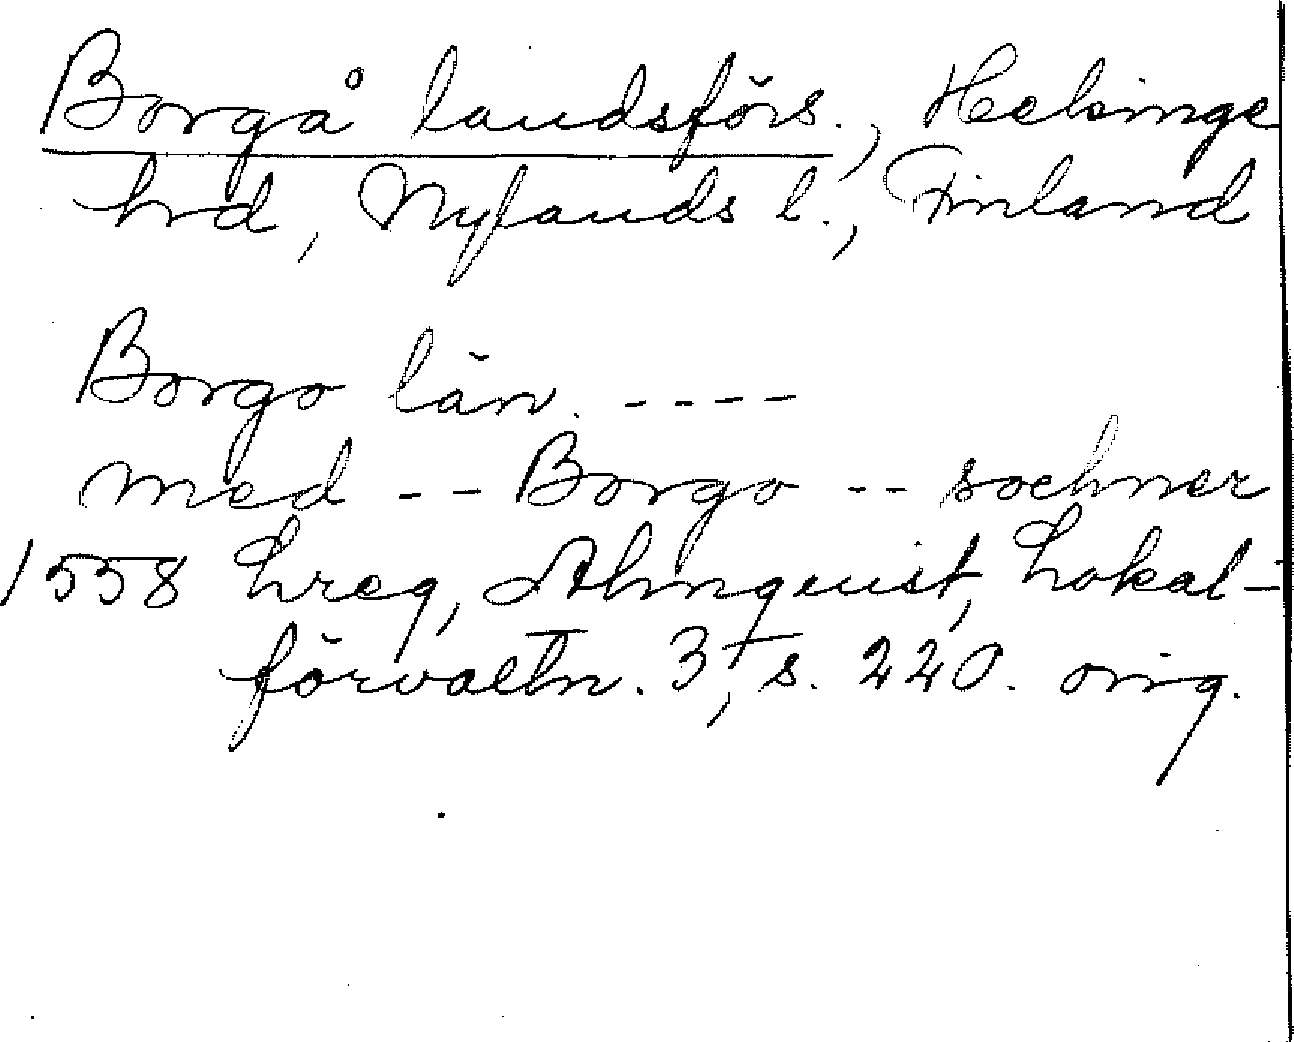 Borgå landsförs., Helsinge
hrd, Nylands l., Finland
Borgo län. ----
med -- Borgo -- sochner
1558 Lreg, Almquist, Lokal-
förvaltn. 3, s. 220. orig.